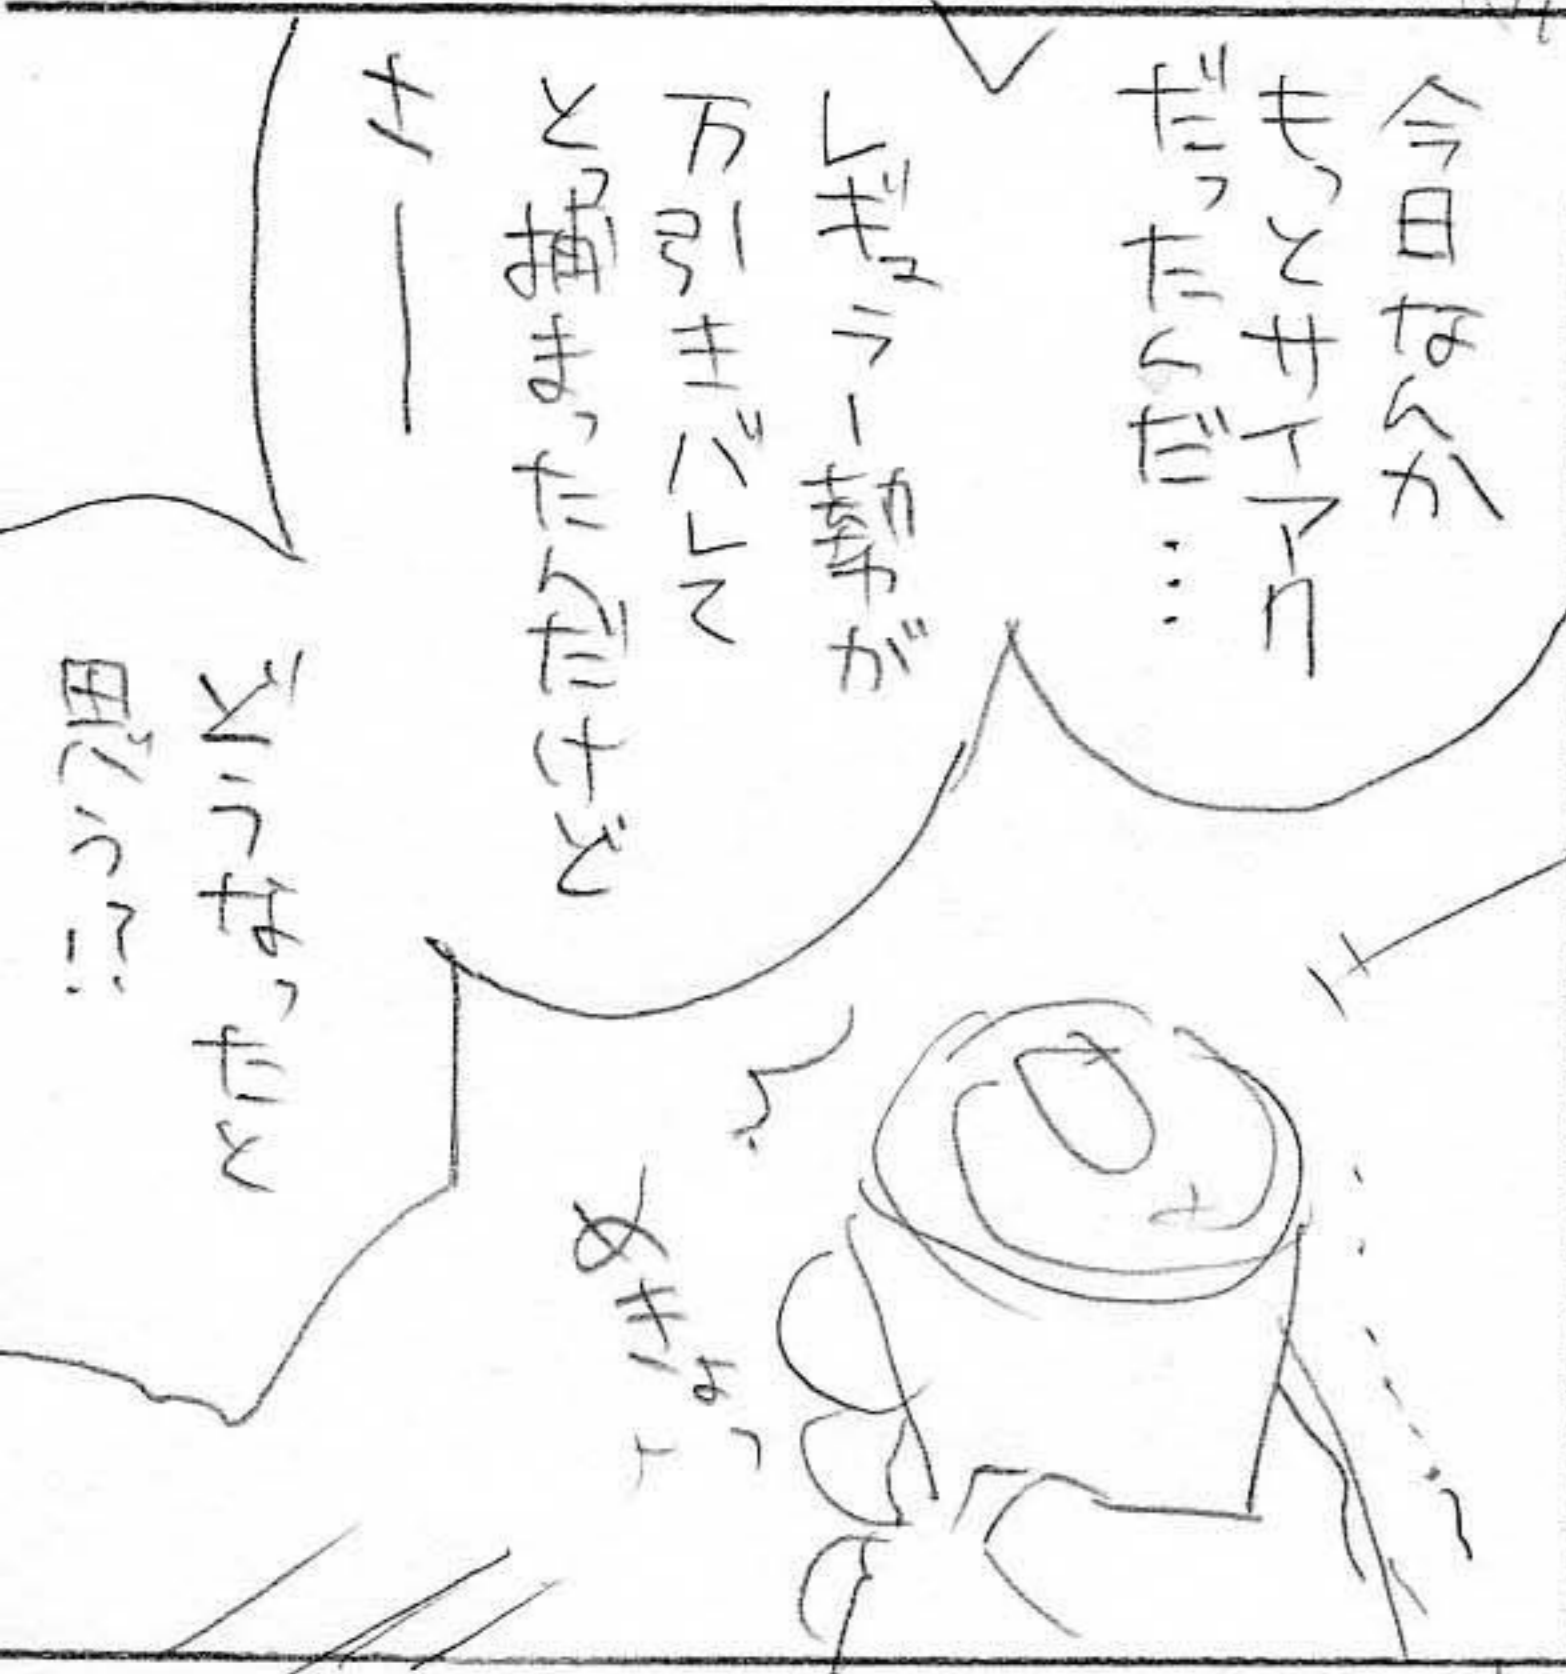 今日なんか
もっとサイアク
だったんだ…
レギュラー勢が
万引きバレて
とっ捕まったんだけど
さー
どうなったと
思う!?
めきょっ